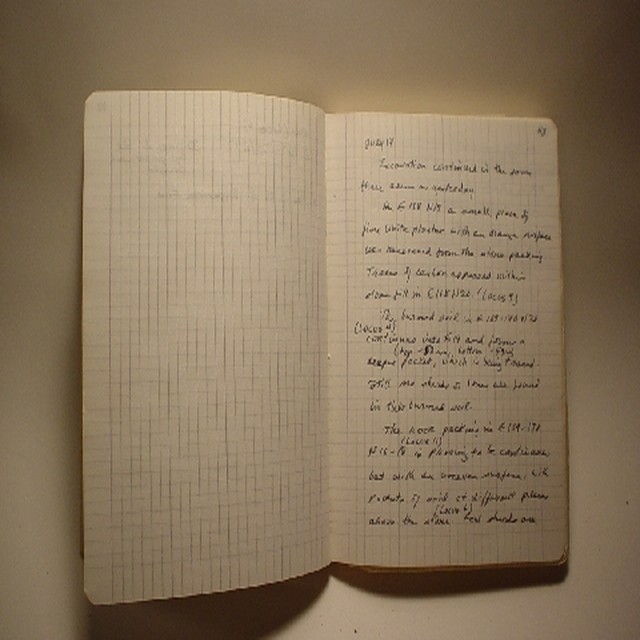 43
July 17
Excavation continued in the same
three areas as yesterday.
In E168 N15 a small piece of
fine white plaster with an orange surface
was recovered from the stone packing
Traces of carbon appeared within
stone fill in E168 N22. (Locus 9)
The burned soil in E169-170 N22
(Locus
continues into and forms a
(top bottom
deeper pocket, which is being traced.
Still no sherds or bone are found
in this burned soil.
The rock packing in E169-170
(Locus 11)
N16-18 is proving to be continuous
but with an uneven surface, with
pockets of soil at different places
(Locus 6)
above the stone. Few sherds are